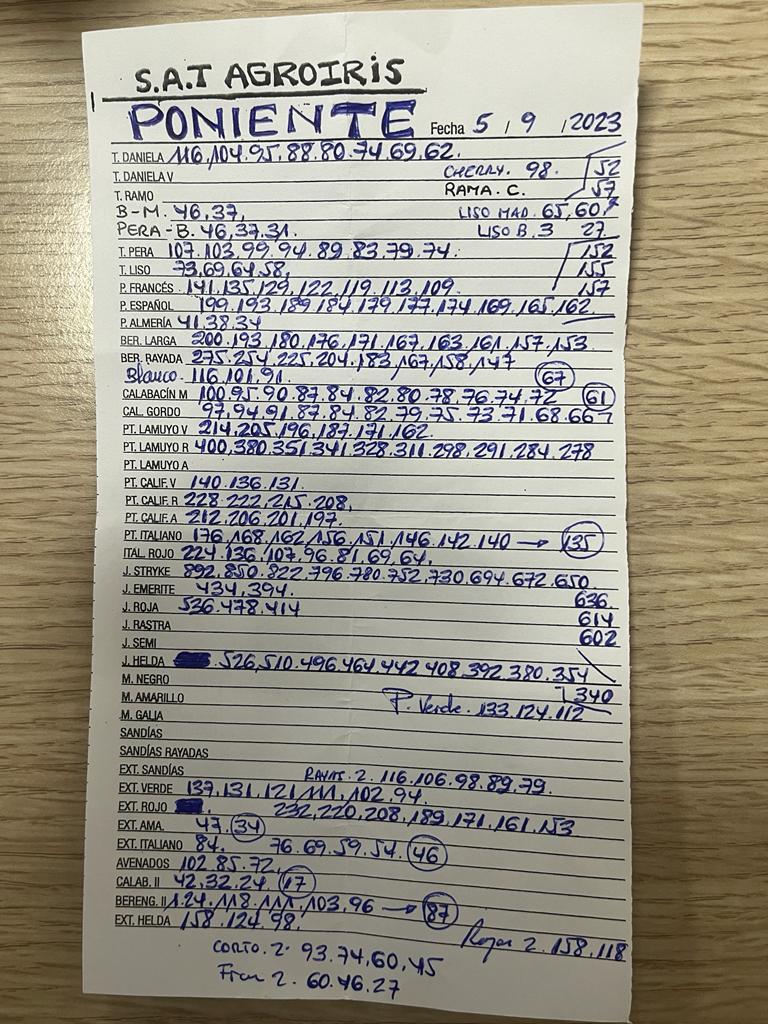 S.A.T AGROIRIS
PONIENTE Fecha 5 / 9 / 2023
T. DANIELA 116,104.95.88.80.74.69.62.
T. DANIELA V CHERRY. 98. 52
T. RAMO RAMA. C. 57
B-M. 46,37, LISO MAD. 65,60
PERA-B. 46,37.31. LISO B. 3 27
T. PERA 107.103.99.94.89.83.79.74. 152
T. LISO 73,69.64.58, 155
P. FRANCÉS 141.135.129.122.119.113.109. 157
P. ESPAÑOL 199.193.189.184.179.177.174.169.165.162
P. ALMERÍA 41.38.34
BER. LARGA 200.193.180.176.171.167.163.161.157.153
BER. RAYADA 275.254.225.204.183.167.158.147
Blanco. 116.101.91. 67
CALABACÍN M 100.95.90.87.84.82.80.78.76.74.72 61
CAL. GORDO 97.94.91.87.84.82.79.75.73.71.68.66
PT. LAMUYO V 214.205.196.187.171.162.
PT. LAMUYO R 400.380.351.341.328.311.298.291.284.278
PT. LAMUYO A
PT. CALIF. V 140.136.131.
PT. CALIF. R 228.222.215.208,
PT. CALIF. A 212.206.201.197.
PT. ITALIANO 176.168.162.156.151.146.142.140 → 135
ITAL. ROJO 224.136.107.96.81.69,64.
J. STRYKE 892.850.822.796.780.752.730.694.672.650
J. EMERITE 434,394. 636.
J. ROJA 536.478.414 614
J. RASTRA 602
J. SEMI
J. HELDA 526,510.496.464.442.408.392.380.354
M. NEGRO 340
M. AMARILLO P. Verde. 133.124.112
M. GALIA
SANDÍAS
SANDÍAS RAYADAS
EXT. SANDÍAS 2. 116.106.98.89.79.
EXT. VERDE 137,131.121,111.102.94.
EXT. ROJO 232,220.208,189.171.161.153
EXT. AMA. 47.34
EXT. ITALIANO 84. 76.69.59.54. 46
AVENADOS 102.85.72,
CALAB. II 42,32.24. 17
BERENG. II 124.118.111,103,96 → 87
EXT. HELDA 158.124.98.
Rojas 2. 158,118
CORTO. 2. 93.74,60,45
Fran 2. 60.46.27